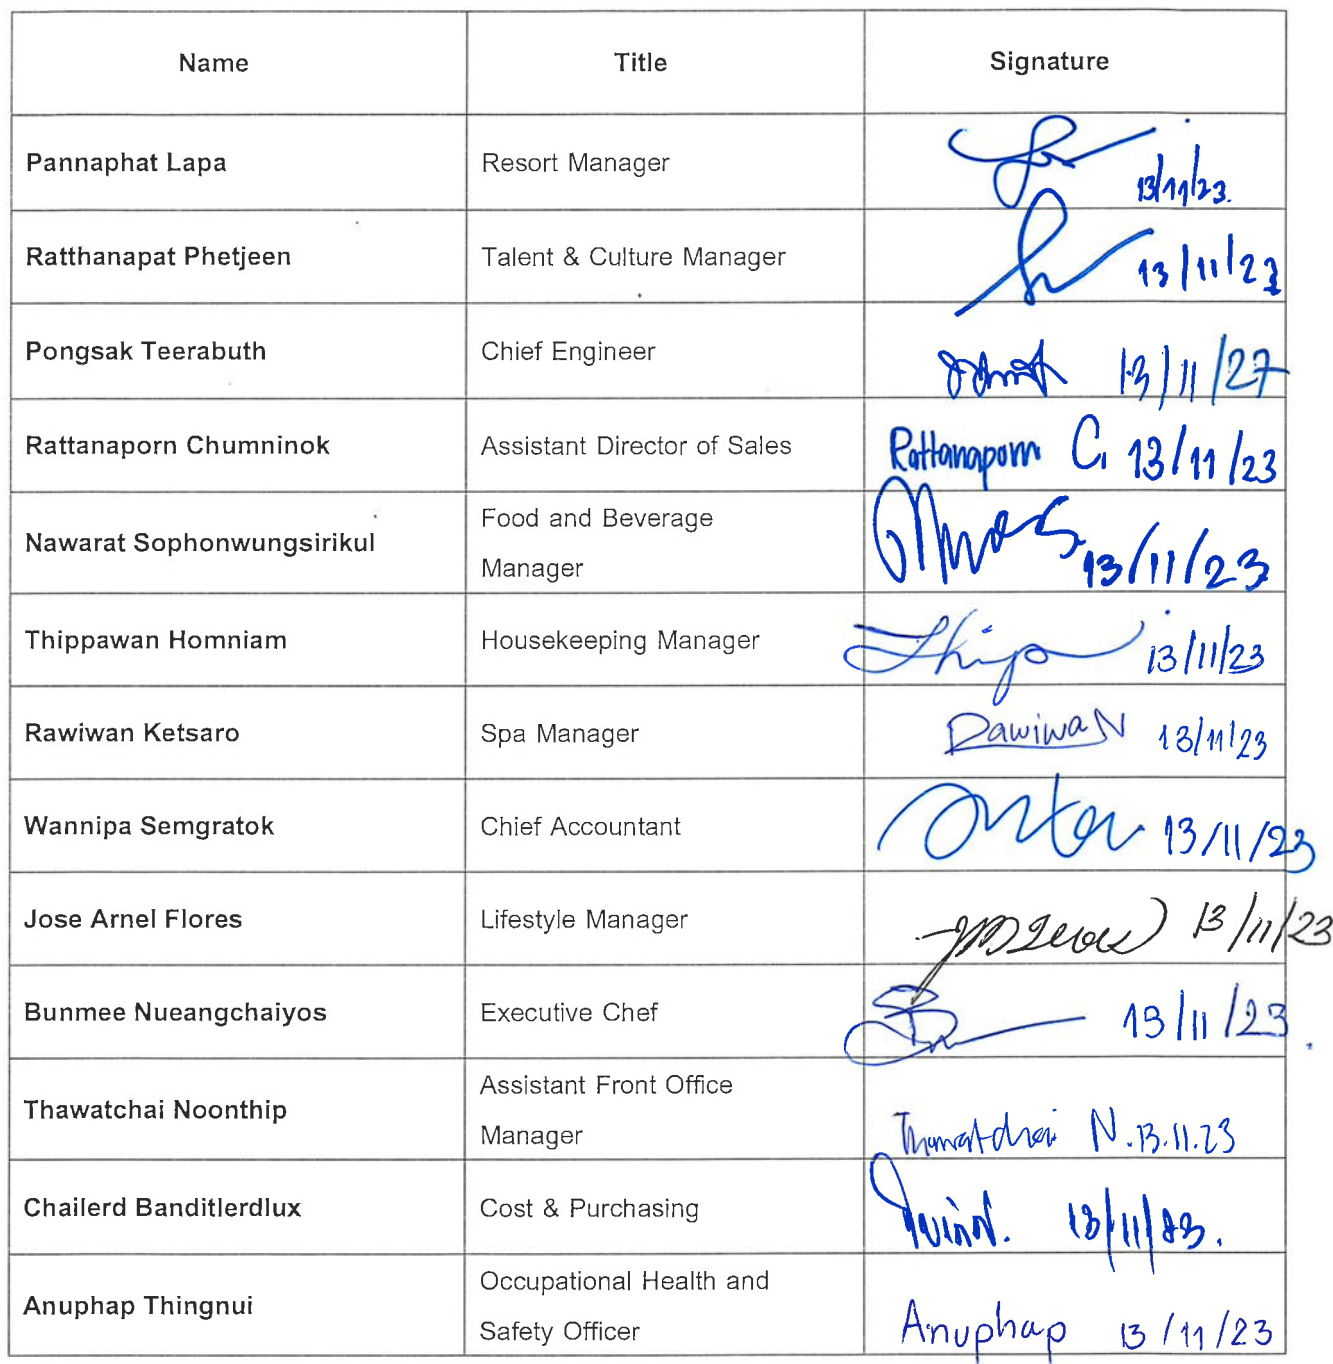 Name Title Signature
Pannaphat Lapa Resort Manager 13/11/23.
Ratthanapat Phetjeen Talent & Culture Manager 13/11/23
Pongsak Teerabuth Chief Engineer 13/11/27
Rattanaporn Chumninok Assistant Director of Sales Rattanaporn C. 13/11/23
Nawarat Sophonwungsirikul Food and Beverage
Manager 13/11/23
Thippawan Homniam Housekeeping Manager 13/11/23
Rawiwan Ketsaro Spa Manager RawiwaN 13/11/23
Wannipa Semgratok Chief Accountant 13/11/23
Jose Arnel Flores Lifestyle Manager 13/11/23
Bunmee Nueangchaiyos Executive Chef 13/11/23.
Thawatchai Noonthip Assistant Front Office
Manager Thawatchai N. 13.11.23
Chailerd Banditlerdlux Cost & Purchasing 13/11/23.
Anuphap Thingnui Occupational Health and
Safety Officer Anuphap 13/11/23